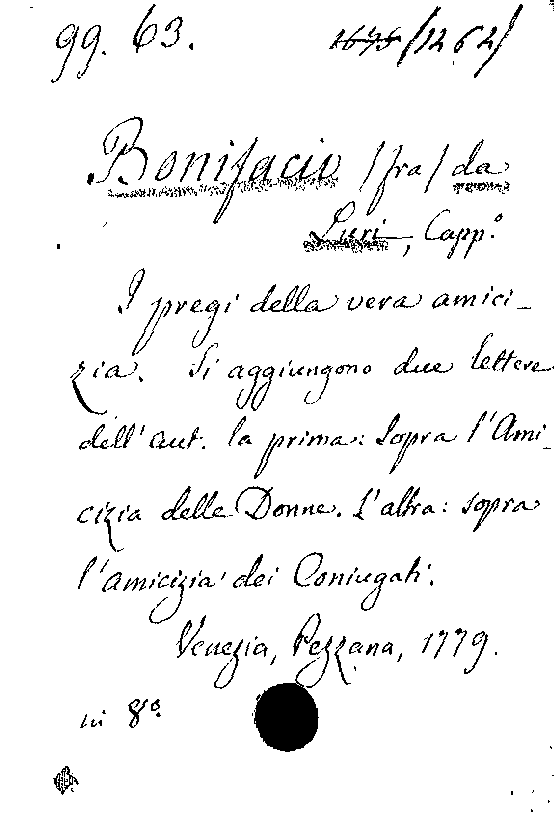 99. 63. 1675 (1262)
Bonifacio (fra) da
Luri, Capp.º
I pregi della vera amici-
zia. Si aggiungono due lettere
dell' aut. la prima: Sopra l'Ami-
cizia delle Donne. L'altra: sopra
l'amicizia dei Coniugati.
Venezia, Pezzana, 1779.
in 8º